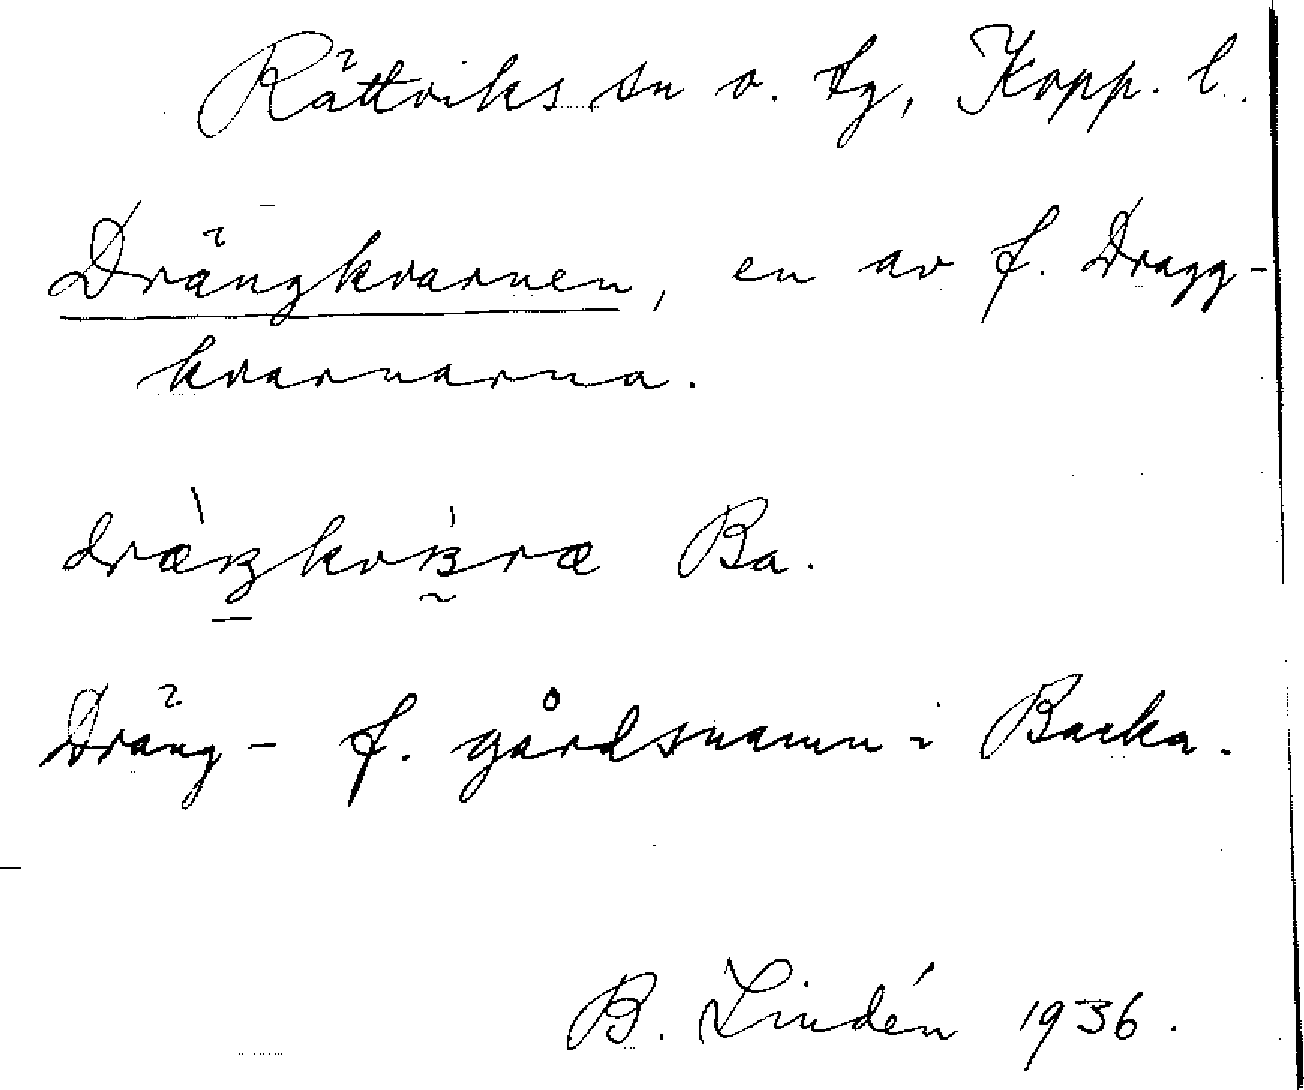 Rättviks sn o. tg, Kopp. l.
Drängkvarnen, en av f. Dragg-
kvarnarna.
Ba.
Dräng- f. gårdsnamn i Backa.
B. Lindén 1936.